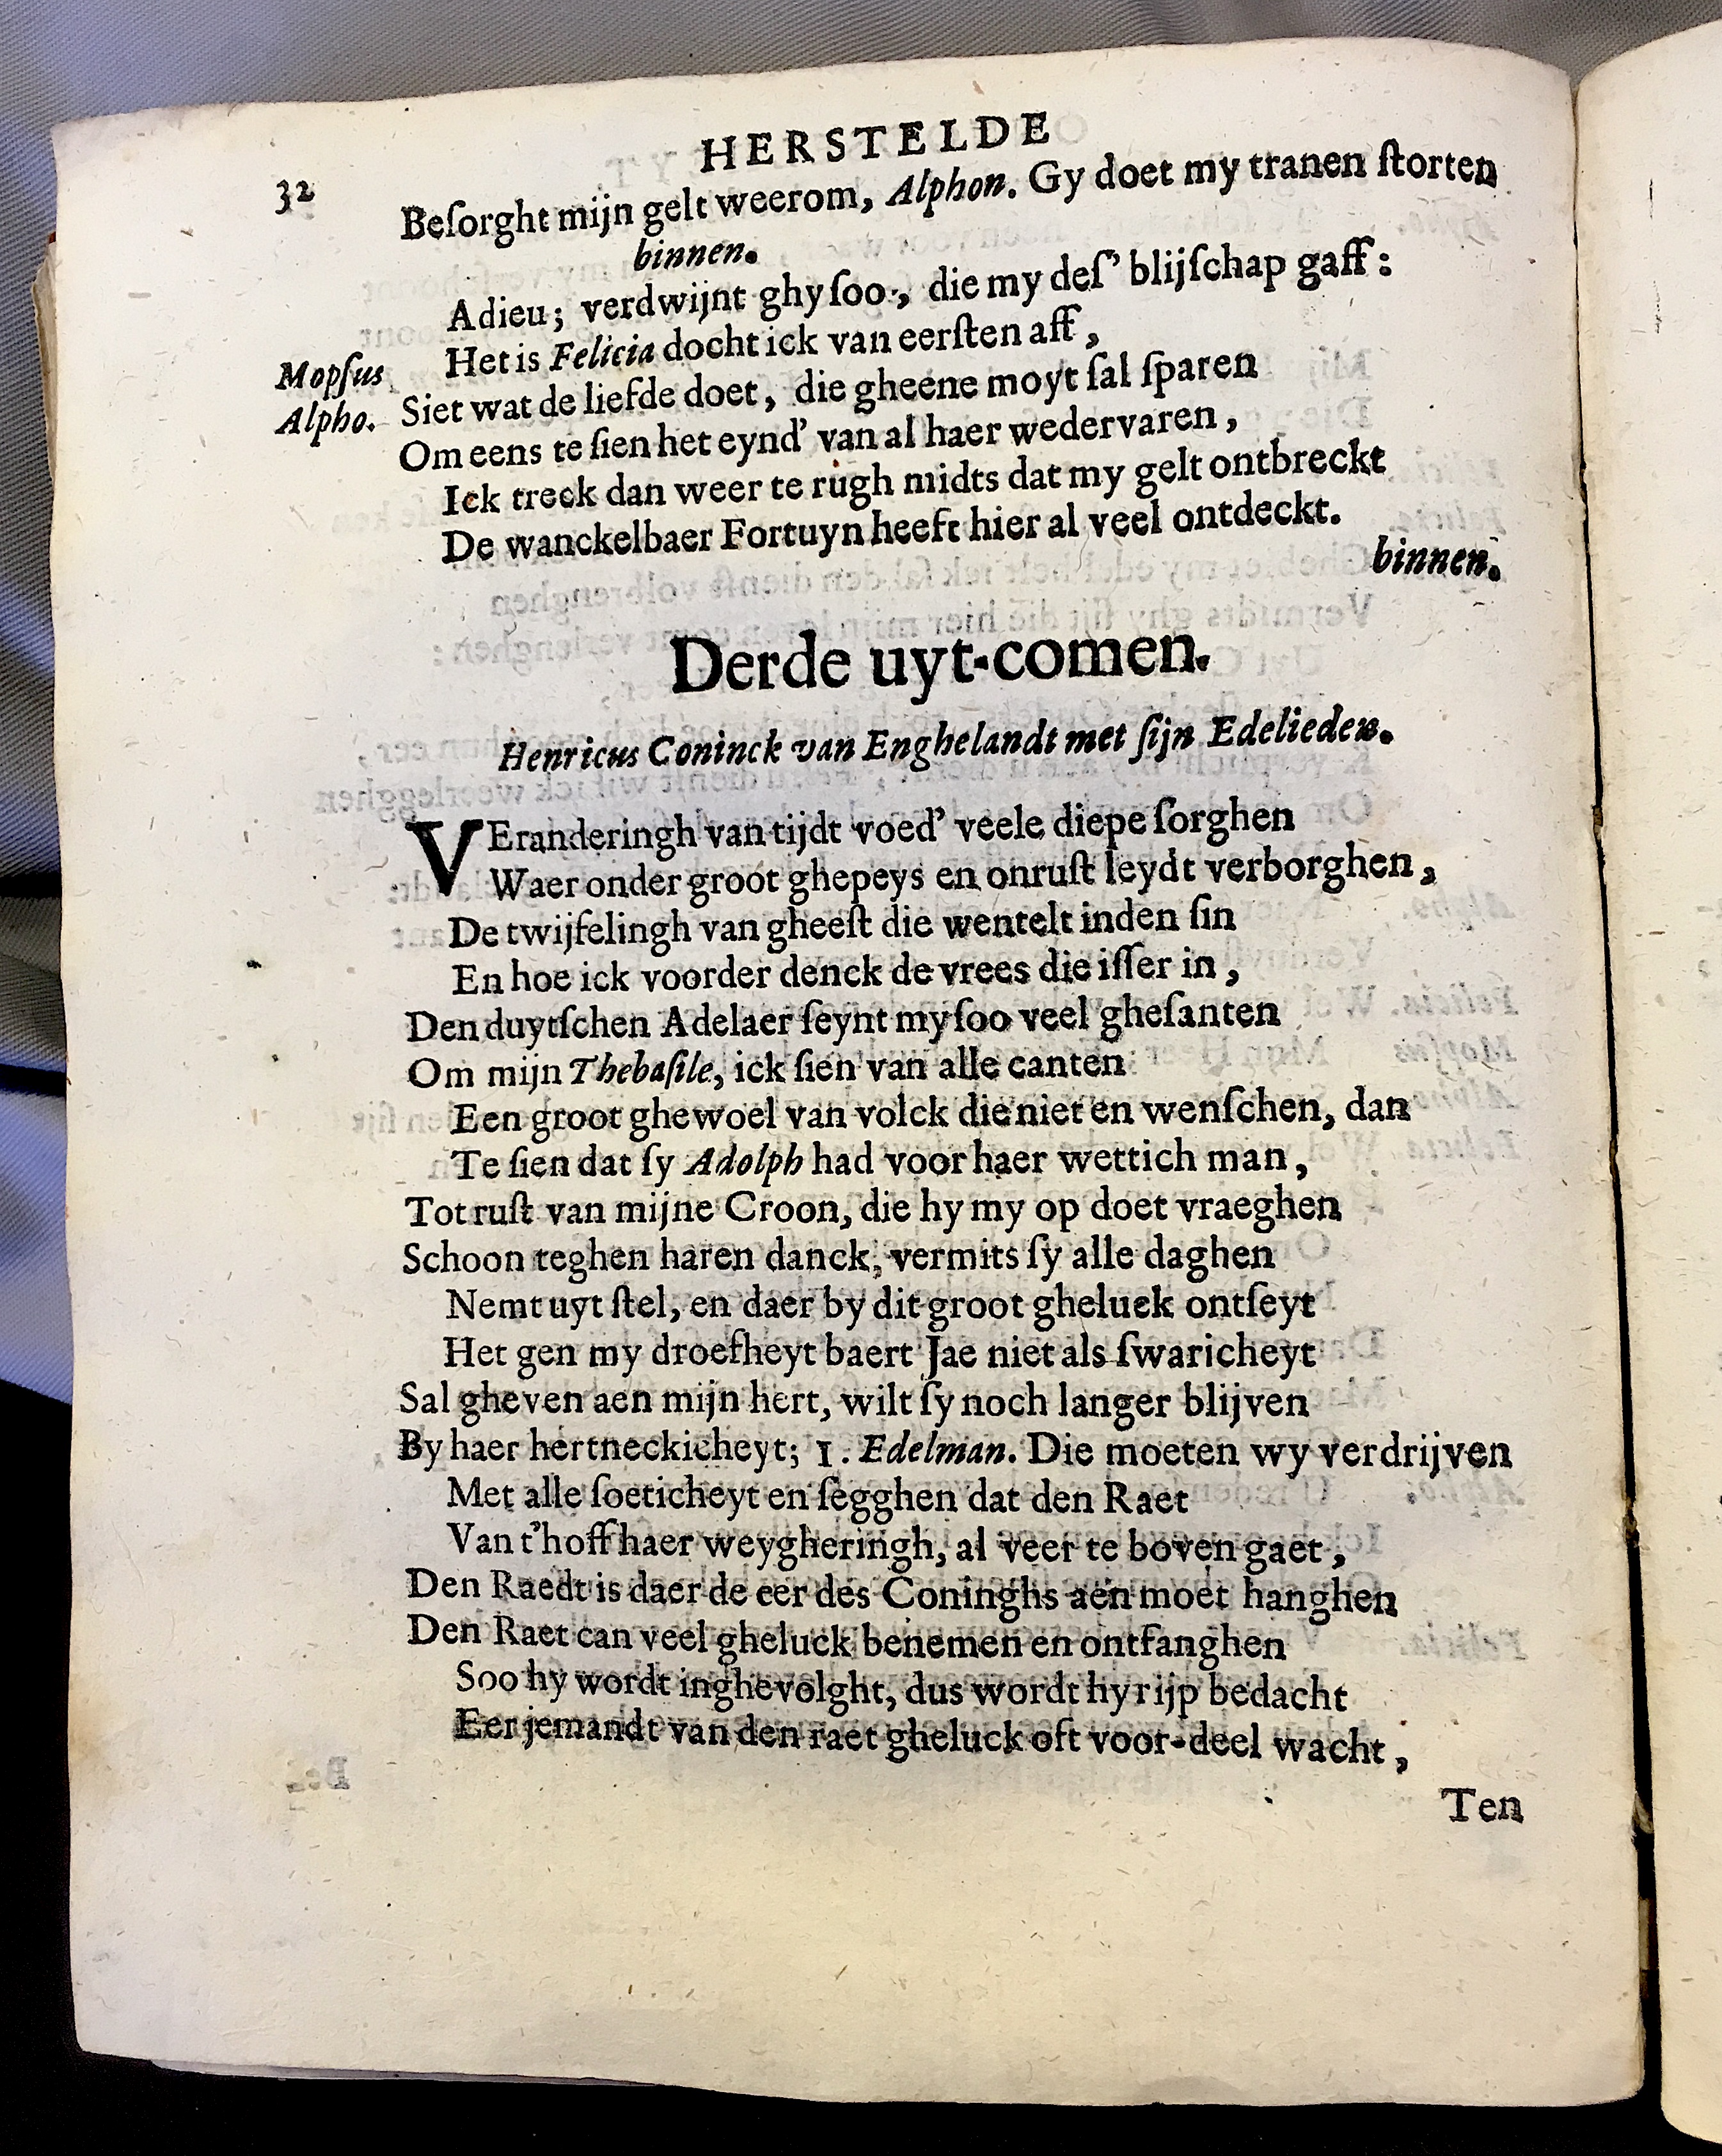 32
HERSTELDE
Beſorght mijn gelt weerom, Alphon. Gy doet my tranen ſtorten
binnen.
Adieu; verdwijnt ghy ſoo, die my deſ' blijſchap gaff:
Het is Felicia docht ick van eerſten aff,
Mopſus
Alpho. Siet wat de liefde doet, die gheene moyt ſal ſparen
Om eens te ſien het eynd' van al haer wedervaren,
Ick treck dan weer te rugh midts dat my gelt ontbreckt
De wanckelbaer Fortuyn heeft hier al veel ontdeckt.
binnen.
Derde uyt-comen.
Henricus Coninck van Enghelandt met ſijn Edelieden.
VEranderingh van tijdt voed' veele diepe ſorghen
Waer onder groot ghepeys en onruſt leydt verborghen,
De twijfelingh van gheeſt die wentelt inden ſin
En hoe ick voorder denck de vrees die iſſer in,
Den duytſchen Adelaer ſeynt my ſoo veel gheſanten
Om mijn Thebaſile, ick ſien van alle canten
Een groot ghewoel van volck die niet en wenſchen, dan
Te ſien dat ſy Adolph had voor haer wettich man,
Tot ruſt van mijne Croon, die hy my op doet vraeghen
Schoon teghen haren danck, vermits ſy alle daghen
Nemt uyt ſtel, en daer by dit groot gheluck ontſeyt
Het gen my droefheyt baert Jae niet als ſwaricheyt
Sal gheven aen mijn hert, wilt ſy noch langer blijven
By haer hertneckicheyt; 1. Edelman. Die moeten wy verdrijven
Met alle ſoeticheyt en ſegghen dat den Raet
Van t'hoff haer weygheringh, al veer te boven gaet,
Den Raedt is daer de eer des Coninghs aen moet hanghen
Den Raet can veel gheluck benemen en ontfanghen
Soo hy wordt inghevolght, dus wordt hy rijp bedacht
Eer jemandt van den raet gheluck oft voor-deel wacht,
Ten